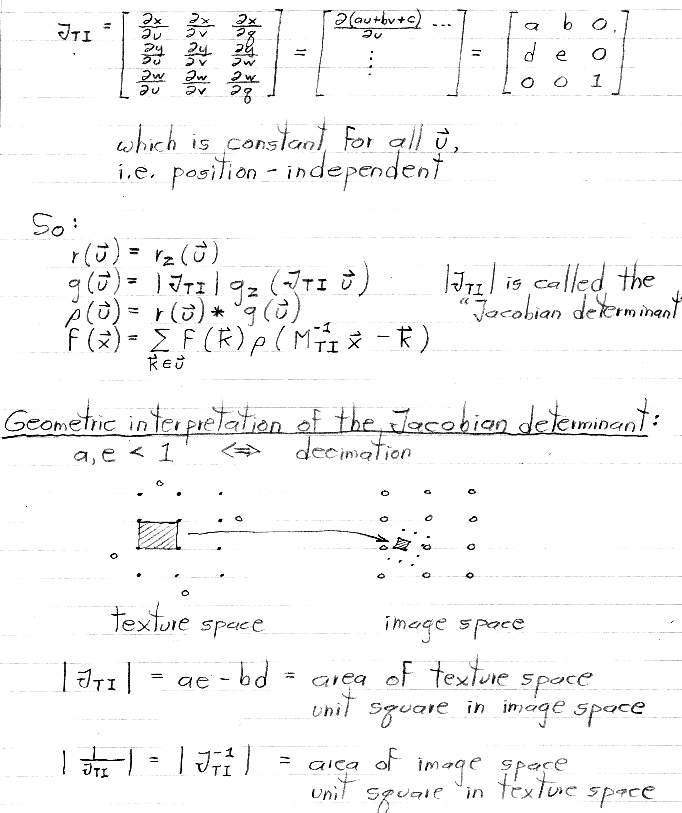 J_TI = [ ∂x/∂u ∂x/∂v ∂x/∂q ; ∂y/∂u ∂y/∂v ∂y/∂q ; ∂w/∂u ∂w/∂v ∂w/∂q ] = [ ∂(au+bv+c)/∂u ... ; ⋮ ] = [ a b 0 ; d e 0 ; 0 0 1 ]
which is constant for all u⃗,
i.e. position-independent
So:
r(u⃗) = r_z(u⃗)
g(u⃗) = |J_TI| g_z (J_TI u⃗) |J_TI| is called the
ρ(u⃗) = r(u⃗) * g(u⃗) "Jacobian determinant
F(x⃗) = Σ_{k⃗∈u⃗} F(k⃗) ρ(M_TI^-1 x⃗ - k⃗)
Geometric interpretation of the Jacobian determinant:
a, e < 1 ⇔ decimation
texture space image space
|J_TI| = ae - bd = area of texture space
unit square in image space
|1/J_TI| = |J_TI^-1| = area of image space
unit square in texture space